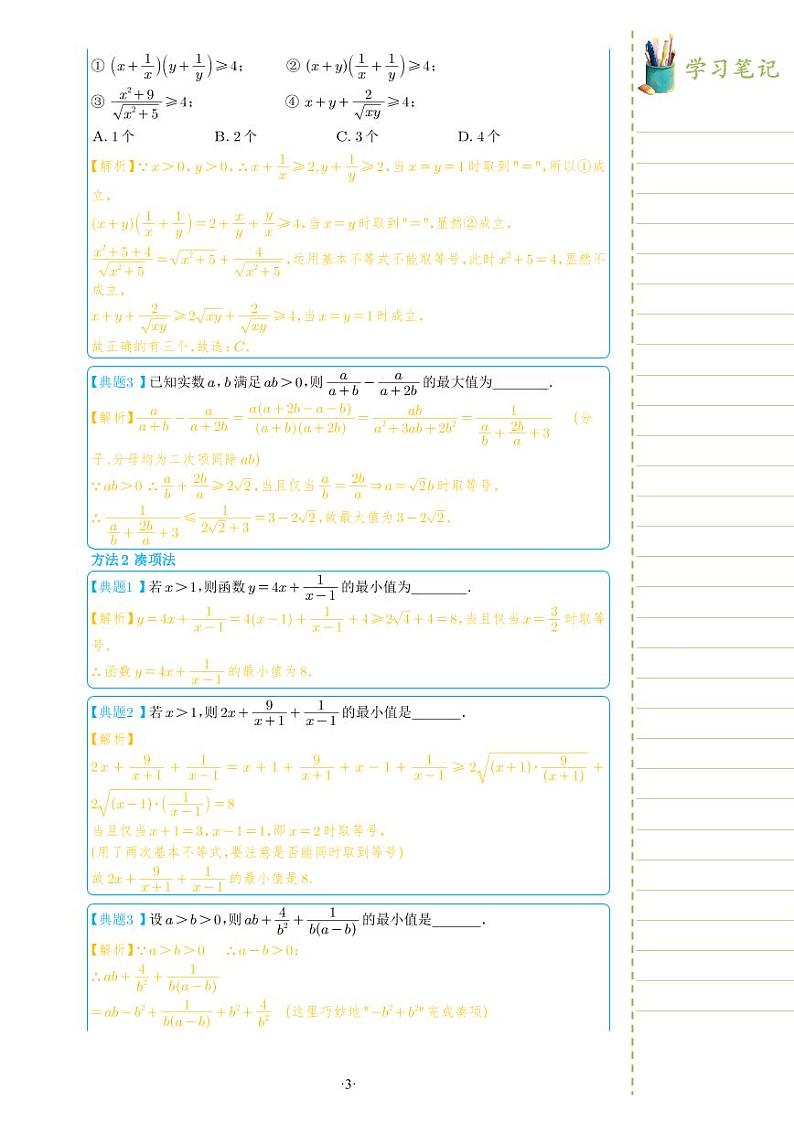 ① (x+1/x)(y+1/y)⩾4; ② (x+y)(1/x+1/y)⩾4;
③ (x²+9)/√(x²+5)⩾4; ④ x+y+2/√(xy)⩾4;
A. 1个 B. 2个 C. 3个 D. 4个
【解析】∵x>0,y>0,∴x+1/x⩾2,y+1/y⩾2,当x=y=1时取到"=",所以①成
立,
(x+y)(1/x+1/y)=2+x/y+y/x⩾4,当x=y时取到"=",显然②成立,
(x²+5+4)/√(x²+5)=√(x²+5)+4/√(x²+5),运用基本不等式不能取等号,此时x²+5=4,显然不
成立,
x+y+2/√(xy)⩾2√(xy)+2/√(xy)⩾4,当x=y=1时成立,
故正确的有三个,故选:C.
【典题3】已知实数a,b满足ab>0,则a/(a+b)-a/(a+2b)的最大值为_______.
【解析】a/(a+b)-a/(a+2b)=a(a+2b-a-b)/((a+b)(a+2b))=ab/(a²+3ab+2b²)=1/(a/b+2b/a+3) (分
子、分母均为二次项同除ab)
∵ab>0 ∴a/b+2b/a⩾2√2,当且仅当a/b=2b/a⇒a=√2b时取等号,
∴1/(a/b+2b/a+3)⩽1/(2√2+3)=3-2√2,故最大值为3-2√2.
方法2 凑项法
【典题1】若x>1,则函数y=4x+1/(x-1)的最小值为_______.
【解析】y=4x+1/(x-1)=4(x-1)+1/(x-1)+4⩾2√4+4=8,当且仅当x=3/2时取等
号.
∴函数y=4x+1/(x-1)的最小值为8.
【典题2】若x>1,则2x+9/(x+1)+1/(x-1)的最小值是_______.
【解析】
2x+9/(x+1)+1/(x-1)=x+1+9/(x+1)+x-1+1/(x-1)⩾2√((x+1)·9/(x+1))+
2√((x-1)·(1/(x-1)))=8
当且仅当x+1=3,x-1=1,即x=2时取等号,
(用了两次基本不等式,要注意是否能同时取到等号)
故2x+9/(x+1)+1/(x-1)的最小值是8.
【典题3】设a>b>0,则ab+4/b²+1/(b(a-b))的最小值是_______.
【解析】∵a>b>0 ∴a-b>0;
∴ab+4/b²+1/(b(a-b))
=ab-b²+1/(b(a-b))+b²+4/b² (这里巧妙地"-b²+b²"完成凑项)
·3·
学习笔记